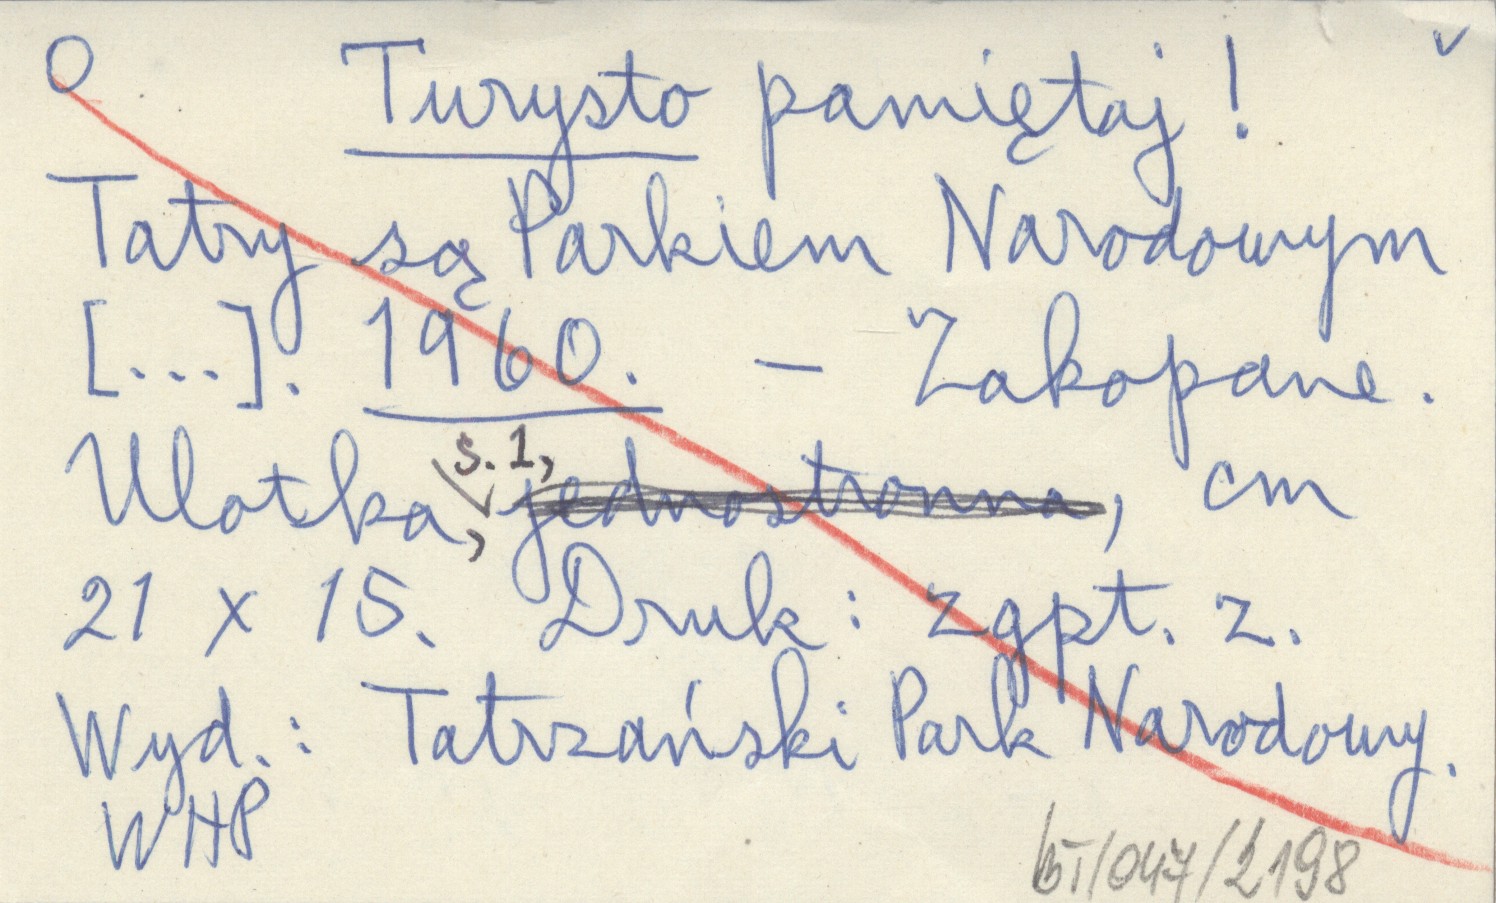 O Turysto pamiętaj!
Tatry są Parkiem Narodowym
[...]. 1960. – Zakopane.
s. 1,
Ulotka, jednostronna, cm
21 x 15. Druk: zgpt. z.
Wyd.: Tatrzański Park Narodowy.
WHP
/047/2198